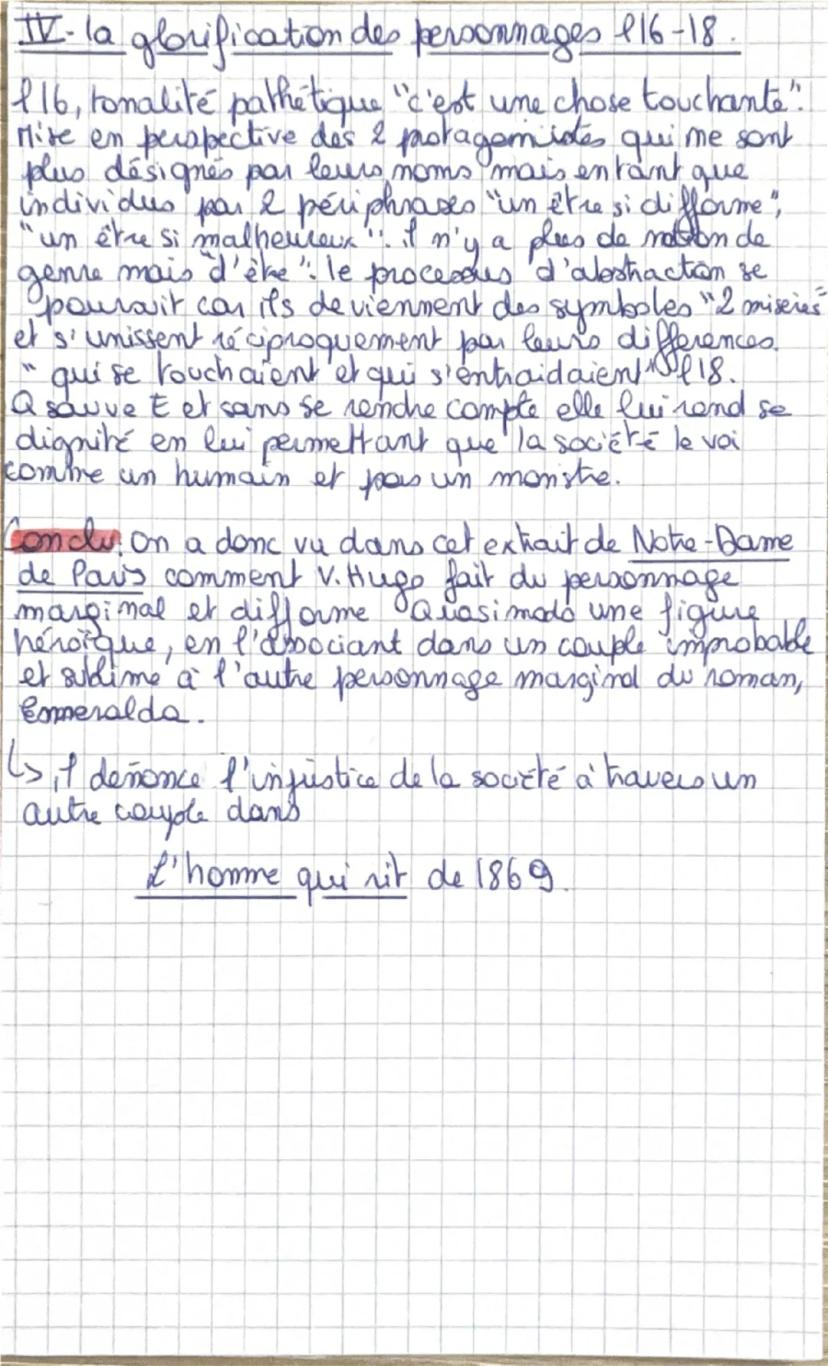 IV- la glorification des personnages l16-18.
l16, tonalité pathétique "c'est une chose touchante".
Mise en perspective des 2 protagonistes qui ne sont
plus désignés par leurs noms mais entant que
individus par 2 périphrases "un être si difforme",
"un être si malheureux". il n'y a plus de notion de
genre mais "d'être". le processus d'abstraction se
poursuit car ils deviennent des symboles "2 misères"
et s'unissent réciproquement par leurs différences.
"qui se touchaient et qui s'entraidaient" l18.
Q sauve E et sans se rendre compte elle lui rend se
dignité en lui permettant que la société le voi
comme un humain et pas un monstre.
Conclu: On a donc vu dans cet extrait de Notre-Dame
de Paris comment V.Hugo fait du personnage
marginal et difforme Quasimodo une figure
héroïque, en l'associant dans un couple improbable
et sublime à l'autre personnage marginal du roman,
Esmeralda.
↳ il dénonce l'injustice de la société à travers un
autre couple dans
L'homme qui rit de 1869.